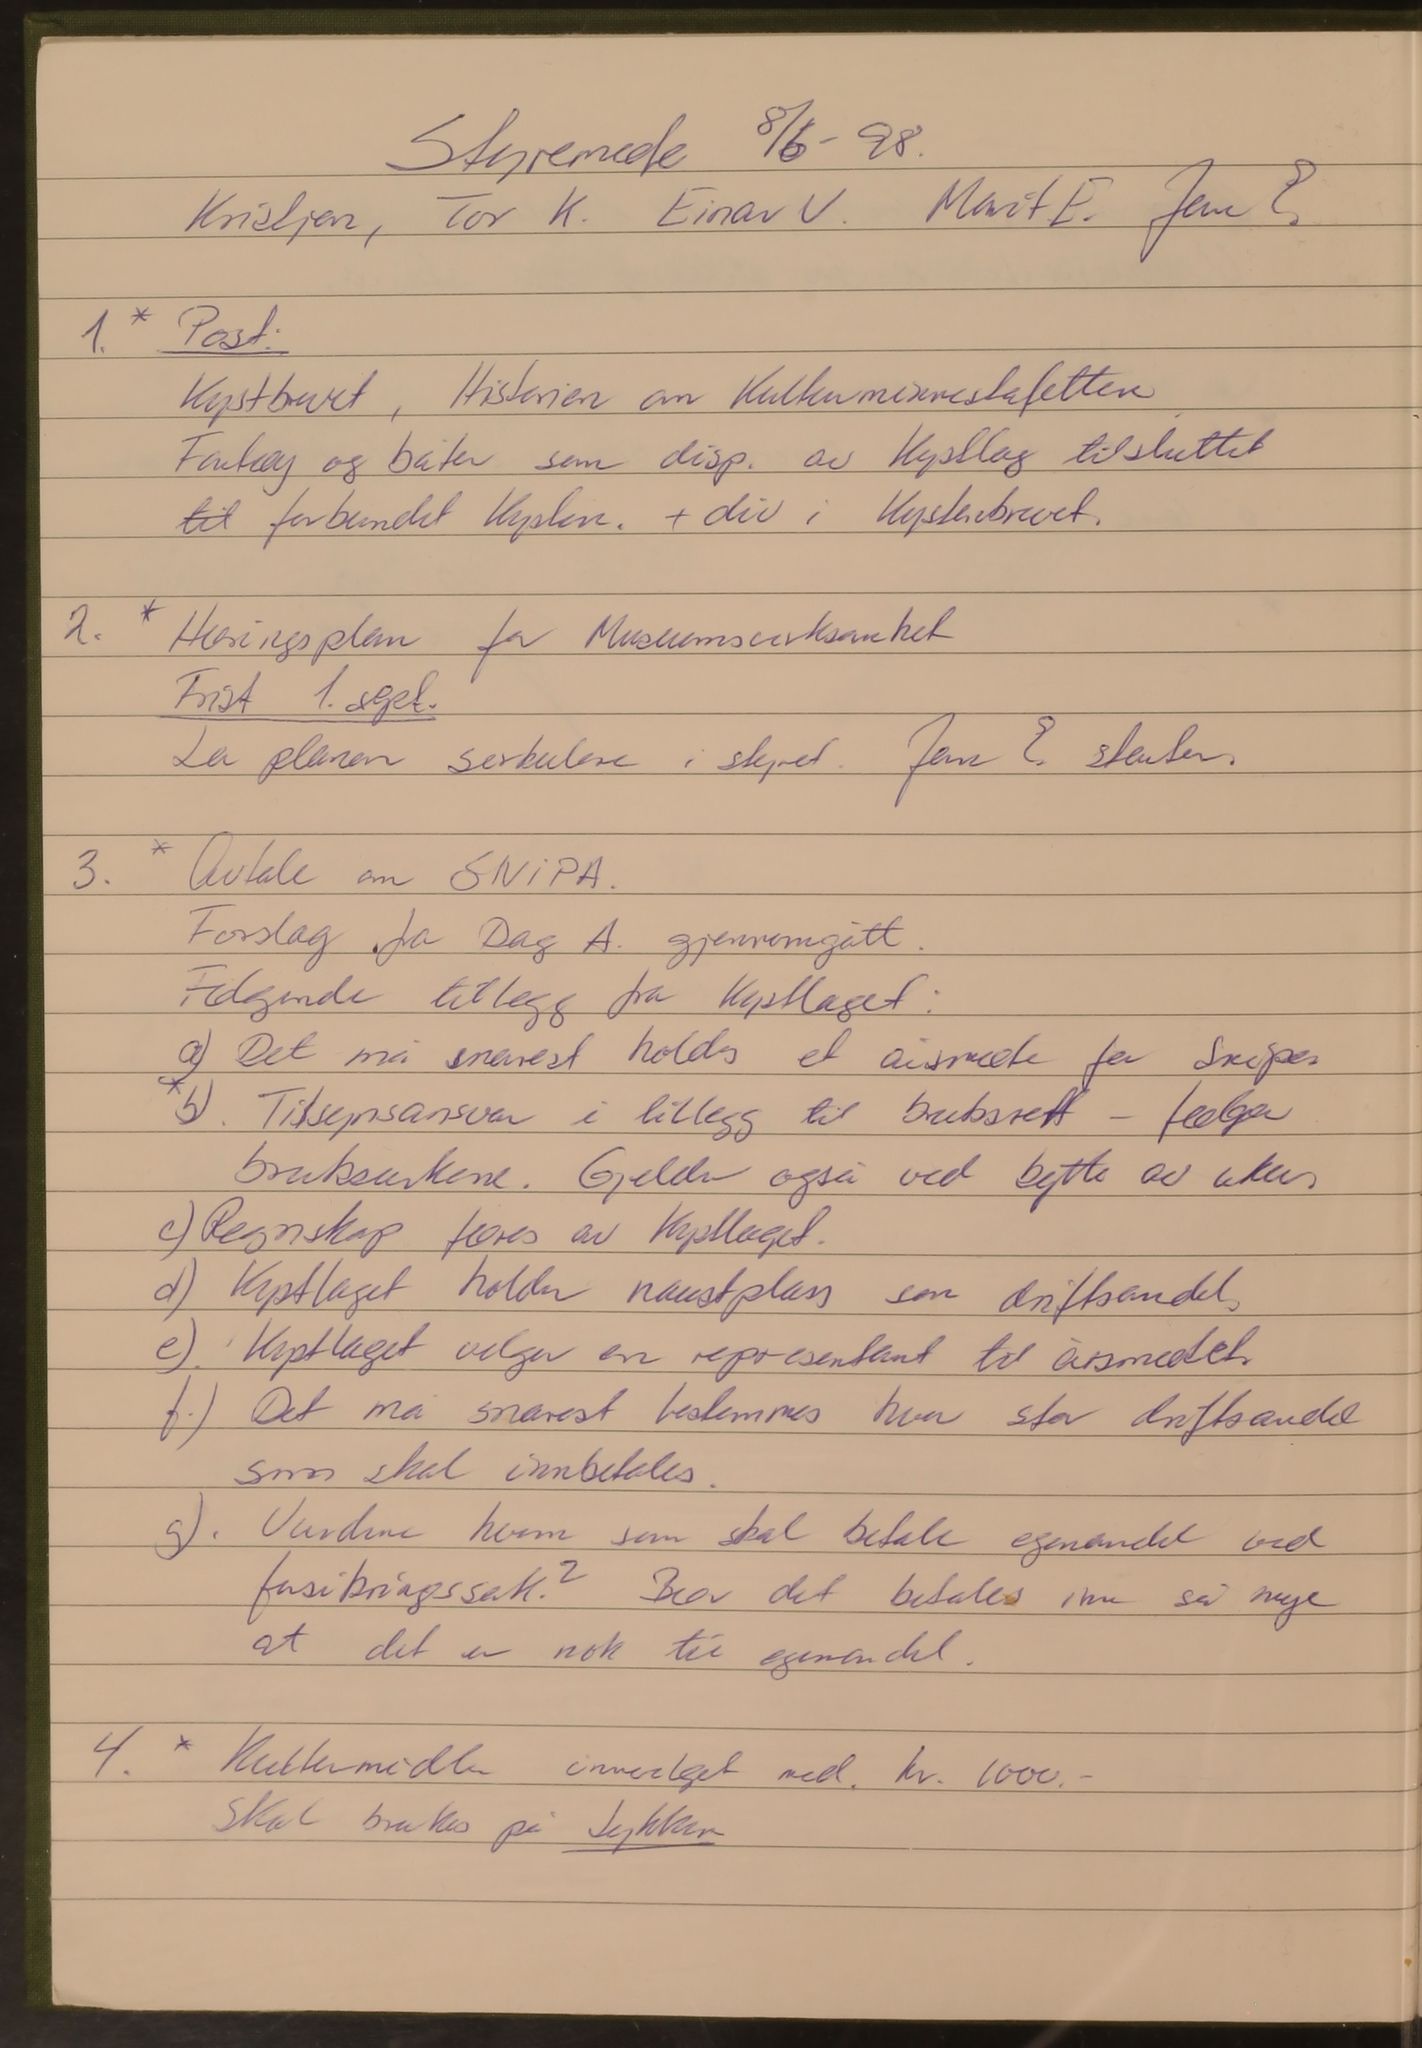 Styremøde 8/6-98.
Kristjan, Tor K. Einar V. Marit E. Jane E.
1. * Post:
Kystbrevet, Historien om Kulturminnestafetten
Fartøy og båter som disp. av Kystlag tilsluttet
til forbundet Kysten. + div i Kystenbrevet.
2. * Høringsplan for Museumsvirksomhet
Frist 1. sept.
La planen serkulere i styret. Jane E. starter.
3. * Avtale om SNIPA.
Forslag fra Dag A. gjennomgått.
Følgende tillegg fra Kystlaget:
a) Det må snarest holdes et årsmøte for Snipa
*b). Tilsynsansvar i tillegg til bruksrett - følger
bruksukene. Gjelder også ved bytte av uker.
c) Regnskap føres av Kystlaget.
d) Kystlaget holder naustplass som driftsandel.
e). Kystlaget velger en representant til årsmødet.
f.) Det må snarest bestemmes hvor stor driftsandel
som skal innbetales.
g). Vurdere hvem som skal betale egenandel ved
forsikringssak.? Bør det betales inn så mye
at det er nok til egenandel.
4. * Kulturmidler innvilget med. kr. 1000.-
Skal brukes på Lykken